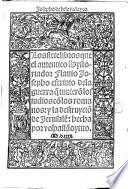 Josepho de bello judayco.
Los siete libros que
el autentico hysto-
riador Flauio Jo-
sepho escriuio dela
guerra q̃ tuuierõ los
judios cõ los roma
nos: y la destruyciõ
de Jerusalẽ: hecha
por vespasiãoytito.